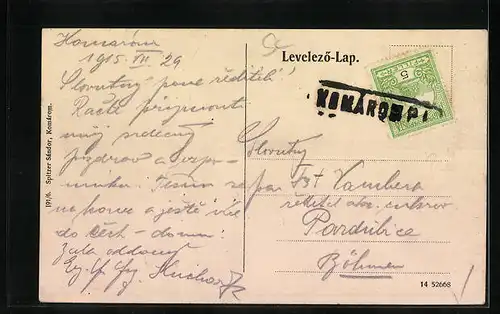 Komárom
1915 VII 29
Slovutný pane řediteli!
Račte přijmouti
můj srdečný
pozdrav a vzpo-
mínku. Těším se
na konec a ještě více
do Čech - domů!
Zcela oddaný
Levelező-Lap.
5
KOMÁROM P.
Slovutný
pan
ředitel
Pardubice
Böhmen
191/6. Spitzer Sándor, Komárom.
14 52668